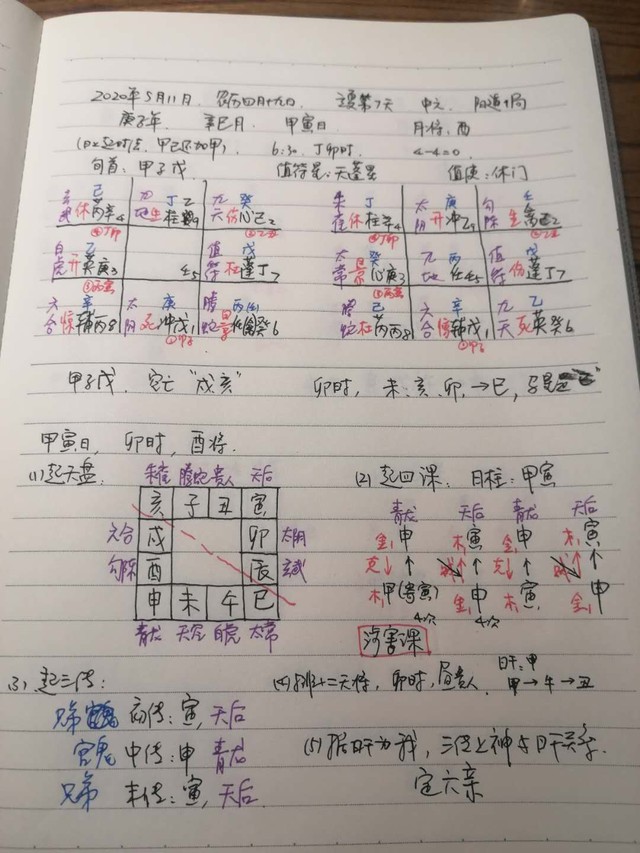 2020年5月11日 农历四月十九日 立夏第7天 中元 阳遁4局
庚子年 辛巳月 甲寅日 月将:酉
甲己还加甲) 6:30 丁卯时 4-4=0
旬首:甲子戊 值符星:天蓬星 值使:休门
己 丁乙 九 癸
休芮辛4 地生柱 天伤心己2
朱 丁 太 庚 勾 壬
雀休柱辛4 阴开冲乙9 陈生
①丁卯
白 乙 值 戊
虎开英庚3 壬5 符杜蓬丁7
太 癸 九 丙 值 戊
常 心庚3 地 任壬5 符伤蓬丁7
六 辛 太 庚 螣
合惊辅丙8 阴死冲戊1 蛇 癸6
螣 六 辛 九 乙
蛇杜芮丙8 合惊辅戊1 天死英癸6
甲子戊,空亡"戌亥"
卯时,未、亥、卯,→巳,
甲寅日,卯时,酉将。
(1)起天盘: 朱雀 腾蛇 贵人 天后
亥 子 丑 寅
六合 戌 卯 太阴
勾陈 酉 辰 玄武
申 未 午 巳
青龙 天空 白虎 太常
(2)起四课: 日柱:甲寅
青龙 天后 青龙 天后
金申 木寅 金申 木寅
克
木甲(寄寅) 金申 木寅 金申
4次 4次
涉害课
(3)起三传:
兄弟 初传:寅,天后
官鬼 中传:申 青龙
兄弟 末传:寅,天后
(4)排十二天将,卯时,昼贵人. 日干:甲
甲→牛→丑
(5)据日干为我,三传上神与日干关系.
定六亲